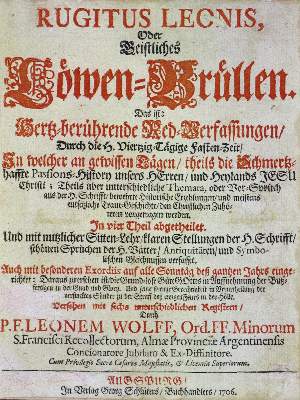 RUGITUS LEONIS,
Oder
Geistliches
Löwen-Brüllen.
Das ist:
Hertz-berührende Red-Verfassungen/
Durch die H. Viertzig-Tägige Fasten-Zeit/
In welcher an gewissen Tägen/ theils die Schmertz-
haffte Passions-History unsers HErren/ und Heylands JESU
Christi; Theils aber unterschidliche Themata, oder Vor-Sprüch
aus der H. Schrifft/ bewehrte Historische Erzehlungen/ und meistens
vorgetragen werden.
In vier Theil abgetheilet.
Und mit nutzlicher Sitten-Lehr/ klaren Stellungen der H. Schrifft/
schönen Sprüchen der H. Vätter/ Antiquitäten/ und Symbo-
lischen Gleichnussen verfasset.
Auch mit besonderen Exordiis auf alle Sonntäg deß gantzen Jahrs einge-
richtet;
Versehen mit sechs unterschiedlichen Registern/
Durch
P. F. LEONEM WOLFF, Ord. FF. Minorum
S. Francisci Recollectorum, Almæ Provinciæ Argentinensis
Concionatore Jubilato & Ex-Diffinitore.
Cum Privilegio Sacræ Cæsareæ Majestatis, & Licentia Superiorum.
AUGSPURG/
In Verlag Georg Schlüters/ Buchhandlers/ 1706.